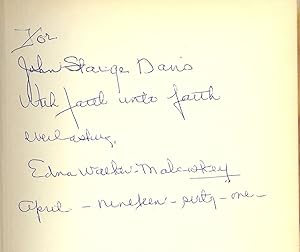 For
John Staige Davis
With faith unto faith
everlasting,
Edna Walker-Malcoskey
April - nineteen - sixty - one -